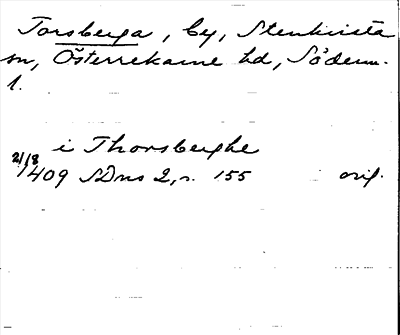 Torsberga, by, Stenkvista
sn, Österrekarne hd, Söderm.
l.
i Thorsberghe
21/8
1409 SDns 2, s. 155 orig.